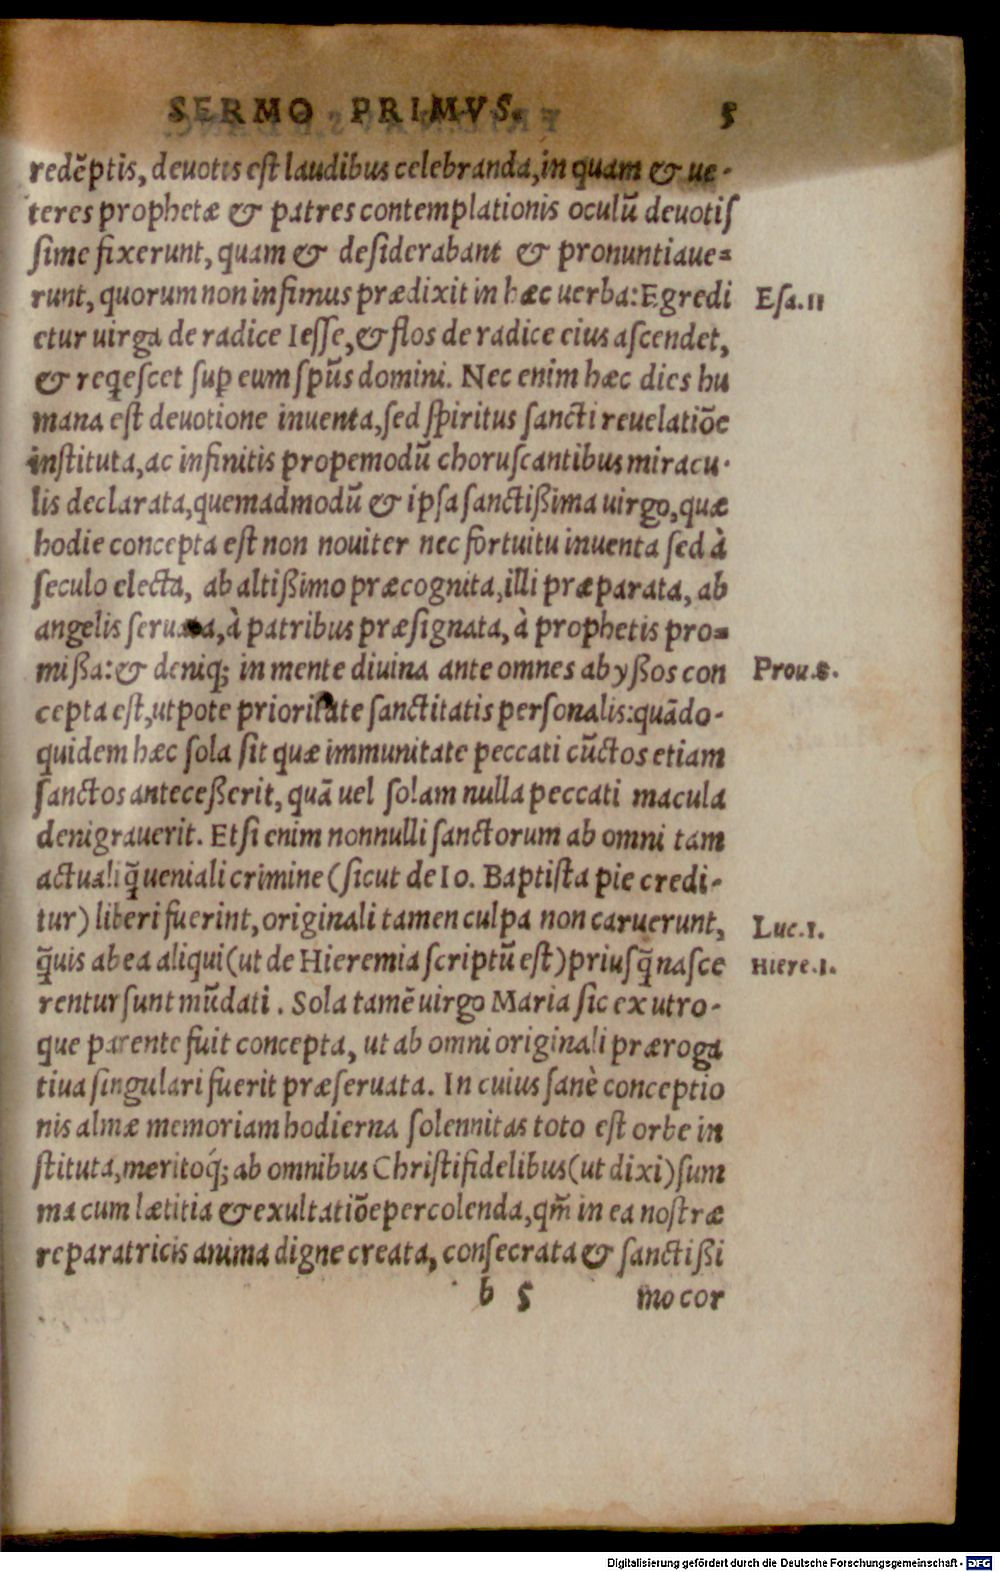 SERMO PRIMVS. 5
redẽptis, deuotis est laudibus celebranda, in quam & ue-
teres prophetæ & patres contemplationis oculũ deuotiſ
ſime fixerunt, quam & deſiderabant & pronuntiaue-
runt, quorum non infimus prædixit in hæc uerba: Egredi
Eſa.11
etur uirga de radice Ieſſe, & flos de radice eius aſcendet,
& reqeſcet sup eum ſpũs domini. Nec enim hæc dies hu
mana eſt deuotione inuenta, ſed ſpiritus ſancti reuelatiõe
inſtituta, ac infinitis propemodũ choruſcantibus miracu-
lis declarata, quemadmodũ & ipſa ſanctißima uirgo, quæ
hodie concepta eſt non nouiter nec fortuitu inuenta ſed à
ſeculo electa, ab altißimo præcognita, illi præparata, ab
angelis ſeruata, à patribus præſignata, à prophetis pro-
mißa: & deniq; in mente diuina ante omnes abyßos con
Prou.8.
cepta eſt, utpote prioritate ſanctitatis perſonalis: quãdo-
quidem hæc ſola ſit quæ immunitate peccati cũctos etiam
ſanctos anteceßerit, quã uel ſolam nulla peccati macula
denigrauerit. Etſi enim nonnulli ſanctorum ab omni tam
actuali q̃ ueniali crimine (ſicut de Io. Baptiſta pie credi-
tur) liberi fuerint, originali tamen culpa non caruerunt,
Luc.1.
q̃uis ab ea aliqui (ut de Hieremia ſcriptũ eſt) priuſq̃ naſce
Hiere.1.
rentur ſunt mũdati. Sola tamẽ uirgo Maria ſic ex utro-
que parente fuit concepta, ut ab omni originali præroga
tiua ſingulari fuerit præſeruata. In cuius ſanè conceptio
nis almæ memoriam hodierna ſolennitas toto eſt orbe in
ſtituta, meritoq́; ab omnibus Chriſtifidelibus (ut dixi) ſum
ma cum lætitia & exultatiõe percolenda, qm̃ in ea noſtræ
reparatricis anima digne creata, conſecrata & ſanctißi
b 5 mo cor
Digitalisierung gefördert durch die Deutsche Forschungsgemeinschaft - DFG